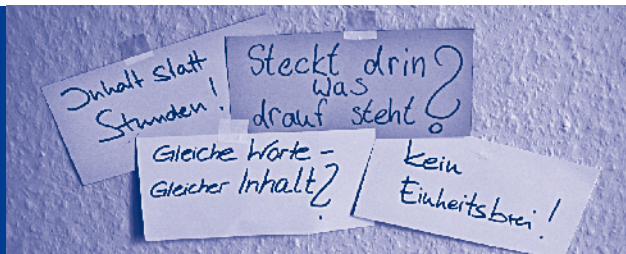 Inhalt statt
Stunden!
Steckt drin
was
drauf steht?
Gleiche Worte -
Gleicher Inhalt?
kein
Einheitsbrei!